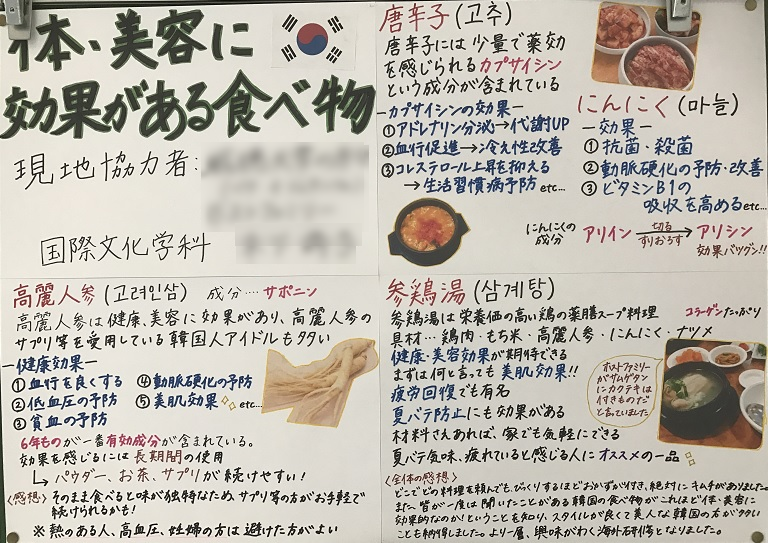 体・美容に
効果がある食べ物
現地協力者:
国際文化学科
唐辛子(고추)
唐辛子には少量で薬効
を感じられるカプサイシン
という成分が含まれている
ーカプサイシンの効果ー
①アドレナリン分泌→代謝UP
②血行促進→冷え性改善
③コレステロール上昇を抑える
→生活習慣病予防etc...
にんにく(마늘)
ー効果ー
①抗菌・殺菌
②動脈硬化の予防・改善
③ビタミンB1の
吸収を高めるetc...
にんにくの
成分
アリイン 切る すりおろす → アリシン
効果バツグン!!
高麗人参(고려인삼) 成分‥‥サポニン
高麗人参は健康、美容に効果があり、高麗人参の
サプリ等を愛用している韓国人アイドルも多い
ー健康効果ー
①血行を良くする ④動脈硬化の予防
②低血圧の予防 ⑤美肌効果 etc...
③貧血の予防
6年ものが一番有効成分が含まれている。
効果を感じるには長期間の使用
↳パウダー、お茶、サプリが続けやすい!
〈感想〉そのまま食べると味が独特なため、サプリ等の方がお手軽で
続けられるかも!
※熱のある人、高血圧、妊婦の方は避けた方がよい
参鶏湯(삼계탕)
参鶏湯は栄養価の高い鶏の薬膳スープ料理 コラーゲンたっぷり
具材…鶏肉・もち米・高麗人参・にんにく・ナツメ
健康・美容効果が期待できる
まずは何と言っても美肌効果!!
疲労回復でも有名
夏バテ防止にも効果がある
材料さえあれば、家でも気軽にできる
夏バテ気味、疲れていると感じる人にオススメの一品
ホストファミリー
がサムゲタン
にカクテキは
付きものだ
と言っていました
〈全体の感想〉
どこでどの料理を頼んでも、びっくりするほどおかずが付き、絶対にキムチがありました。
また、皆が一度は聞いたことがある韓国の食べ物がこれほど体・美容に
効果的なのか!ということを知り、スタイルが良くて美人な韓国の方が多い
ことも納得しました。より一層、興味がわく海外研修となりました。